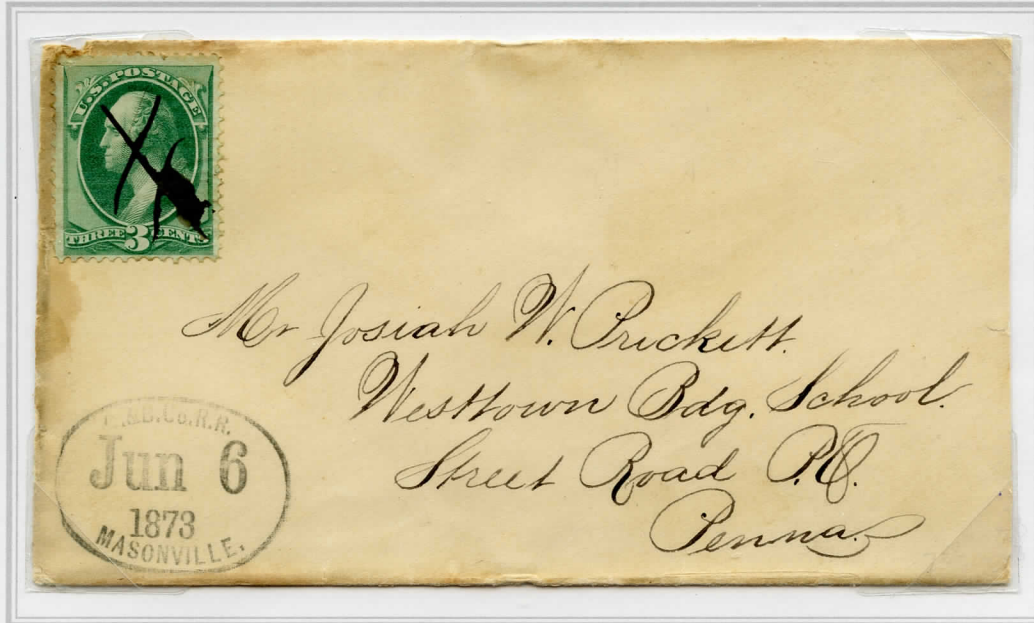 U.S. POSTAGE
THREE 3 CENTS
Mr Josiah W. Prickett.
Westtown Bdg. School.
Street Road P.O.
Penna.
&B.Co.R.R.
Jun 6
1873
MASONVILLE.